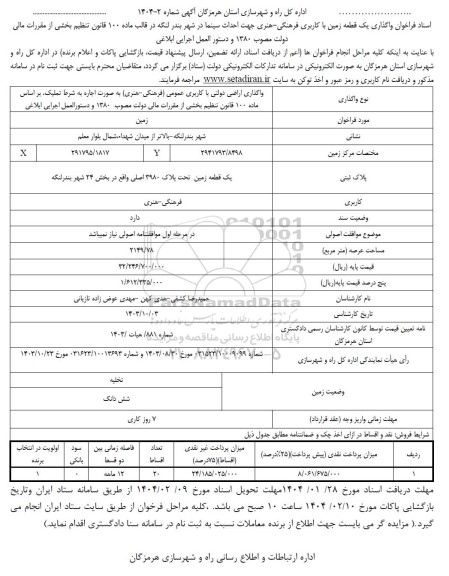 اداره کل راه و شهرسازی استان هرمزگان آگهی شماره ۲-۱۴۰۴
اسناد فراخوان واگذاری یک قطعه زمین با کاربری فرهنگی-هنری جهت احداث سینما در شهر بندر لنگه در قالب ماده ۱۰۰ قانون تنظیم بخشی از مقررات
مالی دولت مصوب ۱۳۸۰ و دستور العمل اجرایی ابلاغی
با عنایت به اینکه کلیه مراحل انجام فراخوان ها (اعم از دریافت اسناد، ارائه تضمین، ارسال پیشنهاد قیمت، بازگشایی پاکات و اعلام برنده) در اداره کل راه و
شهرسازی استان هرمزگان به صورت الکترونیکی در سامانه تدارکات الکترونیکی دولت (ستاد) برگزار می گردد، متقاضیان محترم بایستی جهت ثبت نام در سامانه
مذکور و دریافت نام کاربری و رمز عبور و اخذ توکن به سایت www.setadiran.ir مراجعه فرمایند.
نوع واگذاری
واگذاری اراضی دولتی با کاربری عمومی (فرهنگی-هنری) به صورت اجاره به شرط تملیک، بر اساس
ماده ۱۰۰ قانون تنظیم بخشی از مقررات مالی دولت مصوب ۱۳۸۰ و دستورالعمل اجرایی ابلاغی
مورد فراخوان
زمین
نشانی
شهر بندرلنگه-بالاتر از میدان شهداء،شمال بلوار معلم
مختصات مرکز زمین
۲۹۴۱۷۹۳/۸۴۹۸
Y
۲۹۱۷۹۵/۱۸۱۷
X
پلاک ثبتی
یک قطعه زمین تحت پلاک ۳۹۸- اصلی واقع در بخش ۲۴ شهر بندرلنگه
کاربری
فرهنگی-هنری
وضعیت سند
دارد
موضوع موافقت اصولی
در مرحله اول موافقتنامه اصولی نیاز نمیباشد
مساحت عرصه (متر مربع)
۲۱۴۹/۷۸
قیمت پایه (ریال)
۳۲/۲۴۶/۷۰۰/۰۰۰
پنج درصد قیمت پایه(ریال)
۱/۶۱۲/۳۳۵/۰۰۰
نام کارشناسان
حمیدرضا کشفی-مهدی عوض زاده تازیانی
تاریخ کارشناسی
۱۴۰۳/۱۰/۰۳
نامه تعیین قیمت توسط کانون کارشناسان رسمی دادگستری
استان هرمزگان
شماره ۸۸۱/ هیات /۱۴۰۳
رأی هیأت نمایندگی اداره کل راه و شهرسازی
مورخ ۱۴۰۳/۰۸/۳۰ و شماره ۰۳۱۶۲۳/۱۰۰۱۳۶۹۳ مورخ ۱۴۰۳/۱۰/۲۳
وضعیت زمین
تخلیه
شش دانگ
مهلت زمانی واریز وجه (عقد قرارداد)
۷ روز کاری
شرایط فروش: نقد و اقساط در ازای اخذ چک و ضمانتنامه مطابق جدول ذیل
ردیف
میزان پرداخت نقدی (پیش پرداخت)(۲۵٪درصد)
میزان پرداخت غیر نقدی
(اقساط)(۷۵٪درصد)
تعداد
اقساط
فاصله زمانی بین
دو قسط
سود
بانکی
اولویت در انتخاب
برنده
۱
۸/۰۶۱/۶۷۵/۰۰۰
۲۴/۱۸۵/۰۲۵/۰۰۰
۲۰
۱۲ ماهه
۰
۱
مهلت دریافت اسناد مورخ ۲۸/ ۰۱/ ۱۴۰۴ مهلت تحویل اسناد مورخ ۰۹/ ۱۴۰۴/۰۲ از طریق سامانه ستاد ایران وتاریخ
بازگشایی پاکات مورخ ۰۲/۱۰/ ۱۴۰۴ ساعت ۱۰ صبح می باشد .،کلیه مراحل فراخوان از طریق سایت ستاد ایران انجام می
گیرد.( مزایده گر می بایست جهت اطلاع از برنده معاملات نسبت به ثبت نام در سامانه سنا دادگستری اقدام نماید.)
اداره ارتباطات و اطلاع رسانی راه و شهرسازی هرمزگان